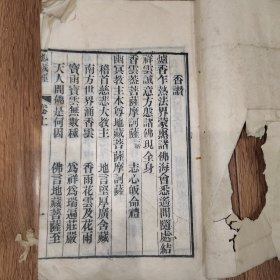 香讚
爐香乍熱法界蒙熏諸佛海會悉遙聞隨處結
祥雲誠意方殷諸佛現全身
香雲蓋菩薩摩訶薩 志心皈命禮
幽冥教主本尊地藏菩薩摩訶薩
稽首慈悲大教主 地言堅厚廣含藏
南方世界涌香雲 香雨花雲及花雨
寶雨寶雲無數種 為祥為瑞遍莊嚴
天人問佛是何因 佛言地藏菩薩至